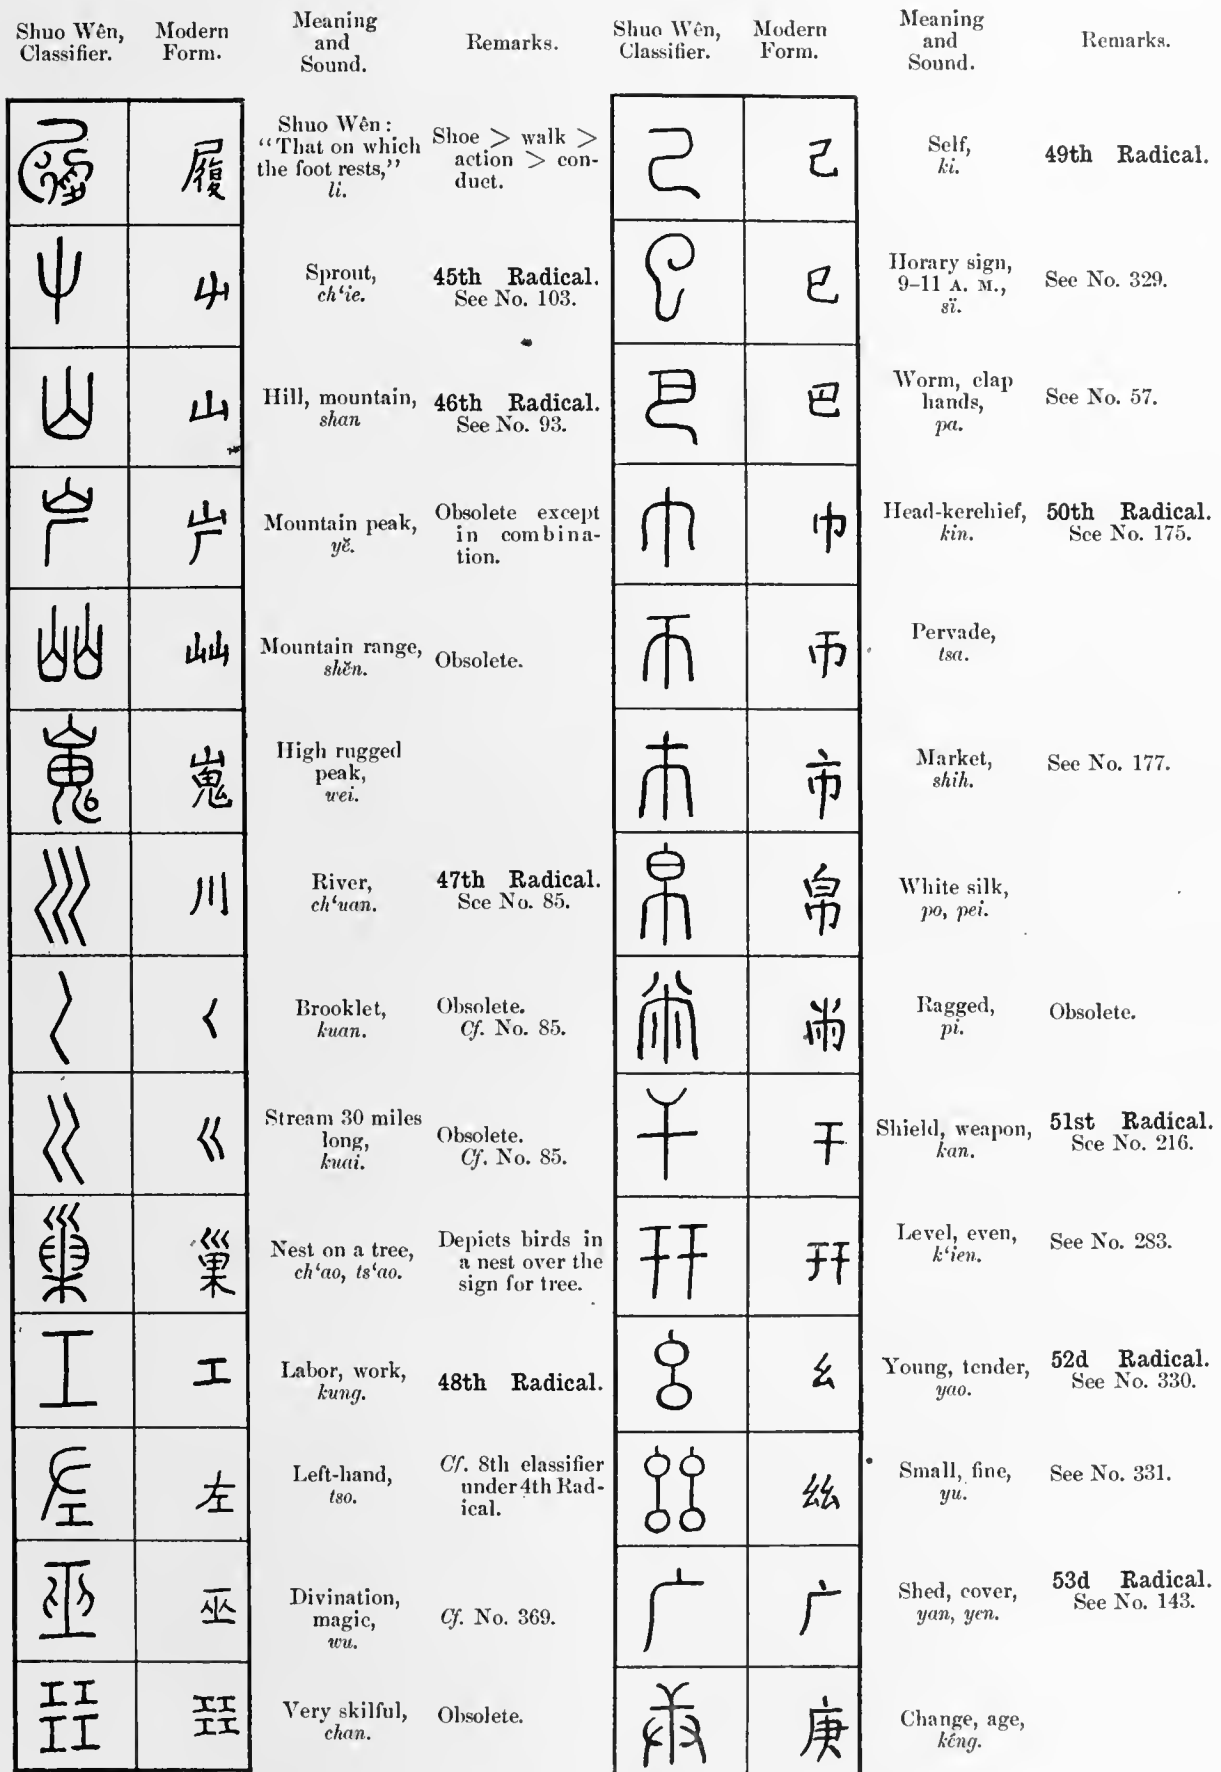 Shuo Wên,
Classifier.
Modern
Form.
Meaning
and
Sound.
Remarks.
履
Shuo Wên:
“That on which
the foot rests,”
li.
Shoe > walk >
action > con-
duct.
屮
Sprout,
ch‘ie.
45th Radical.
See No. 103.
山
Hill, mountain,
shan
46th Radical.
See No. 93.
屵
Mountain peak,
yĕ.
Obsolete except
in combina-
tion.
屾
Mountain range,
shĕn.
Obsolete.
嵬
High rugged
peak,
wei.
川
River,
ch‘uan.
47th Radical.
See No. 85.
巜
Brooklet,
kuan.
Obsolete.
Cf. No. 85.
Stream 30 miles
long,
kuai.
Obsolete.
Cf. No. 85.
巢
Nest on a tree,
ch‘ao, ts‘ao.
Depicts birds in
a nest over the
sign for tree.
工
Labor, work,
kung.
48th Radical.
左
Left-hand,
tso.
Cf. 8th classifier
under 4th Rad-
ical.
巫
Divination,
magic,
wu.
Cf. No. 369.
㠭
Very skilful,
chan.
Obsolete.
Shuo Wên,
Classifier.
Modern
Form.
Meaning
and
Sound.
Remarks.
己
Self,
ki.
49th Radical.
巳
Horary sign,
9–11 A. M.,
sï.
See No. 329.
巴
Worm, clap
hands,
pa.
See No. 57.
巾
Head-kerchief,
kin.
50th Radical.
See No. 175.
帀
Pervade,
tsa.
市
Market,
shih.
See No. 177.
帛
White silk,
po, pei.
㡀
Ragged,
pi.
Obsolete.
干
Shield, weapon,
kan.
51st Radical.
See No. 216.
幵
Level, even,
k‘ien.
See No. 283.
幺
Young, tender,
yao.
52d Radical.
See No. 330.
𢆶
Small, fine,
yu.
See No. 331.
广
Shed, cover,
yan, yen.
53d Radical.
See No. 143.
庚
Change, age,
kéng.